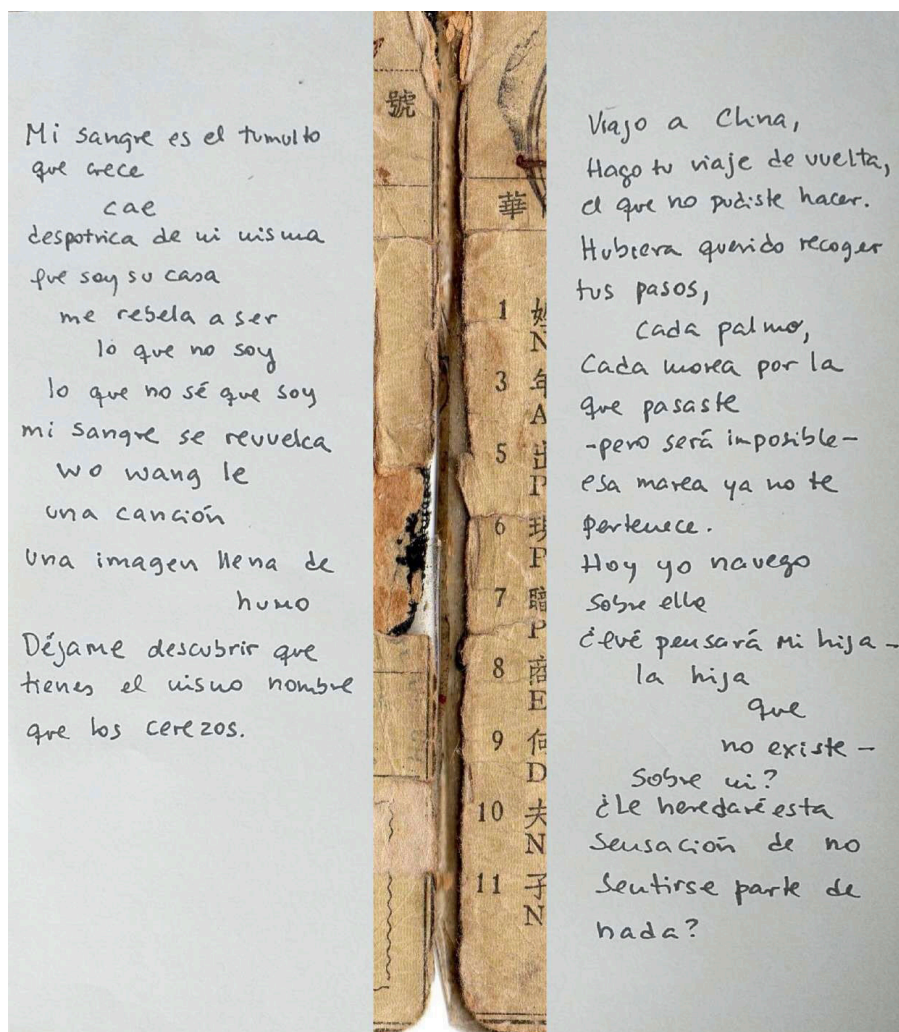 Mi sangre es el tumulto
que crece
cae
despotrica de mi misma
que soy su casa
me rebela a ser
lo que no soy
lo que no sé que soy
mi sangre se revuelca
wo wang le
una canción
una imagen llena de
humo
Déjame descubrir que
tienes el mismo nombre
que los cerezos.
號
華
1
N
3 年
A
5 出
P
6
P
7 臨
P
8 商
E
9 何
D
10 夫
N
11 子
N
Viajo a China,
Hago tu viaje de vuelta,
el que no pudiste hacer.
Hubiera querido recoger
tus pasos,
cada palmo,
Cada marea por la
que pasaste
-pero será imposible-
esa marea ya no te
pertenece.
Hoy yo navego
sobre ella
¿Qué pensará mi hija -
la hija
que
no existe -
sobre mi?
¿Le heredaré esta
sensación de no
sentirse parte de
nada?